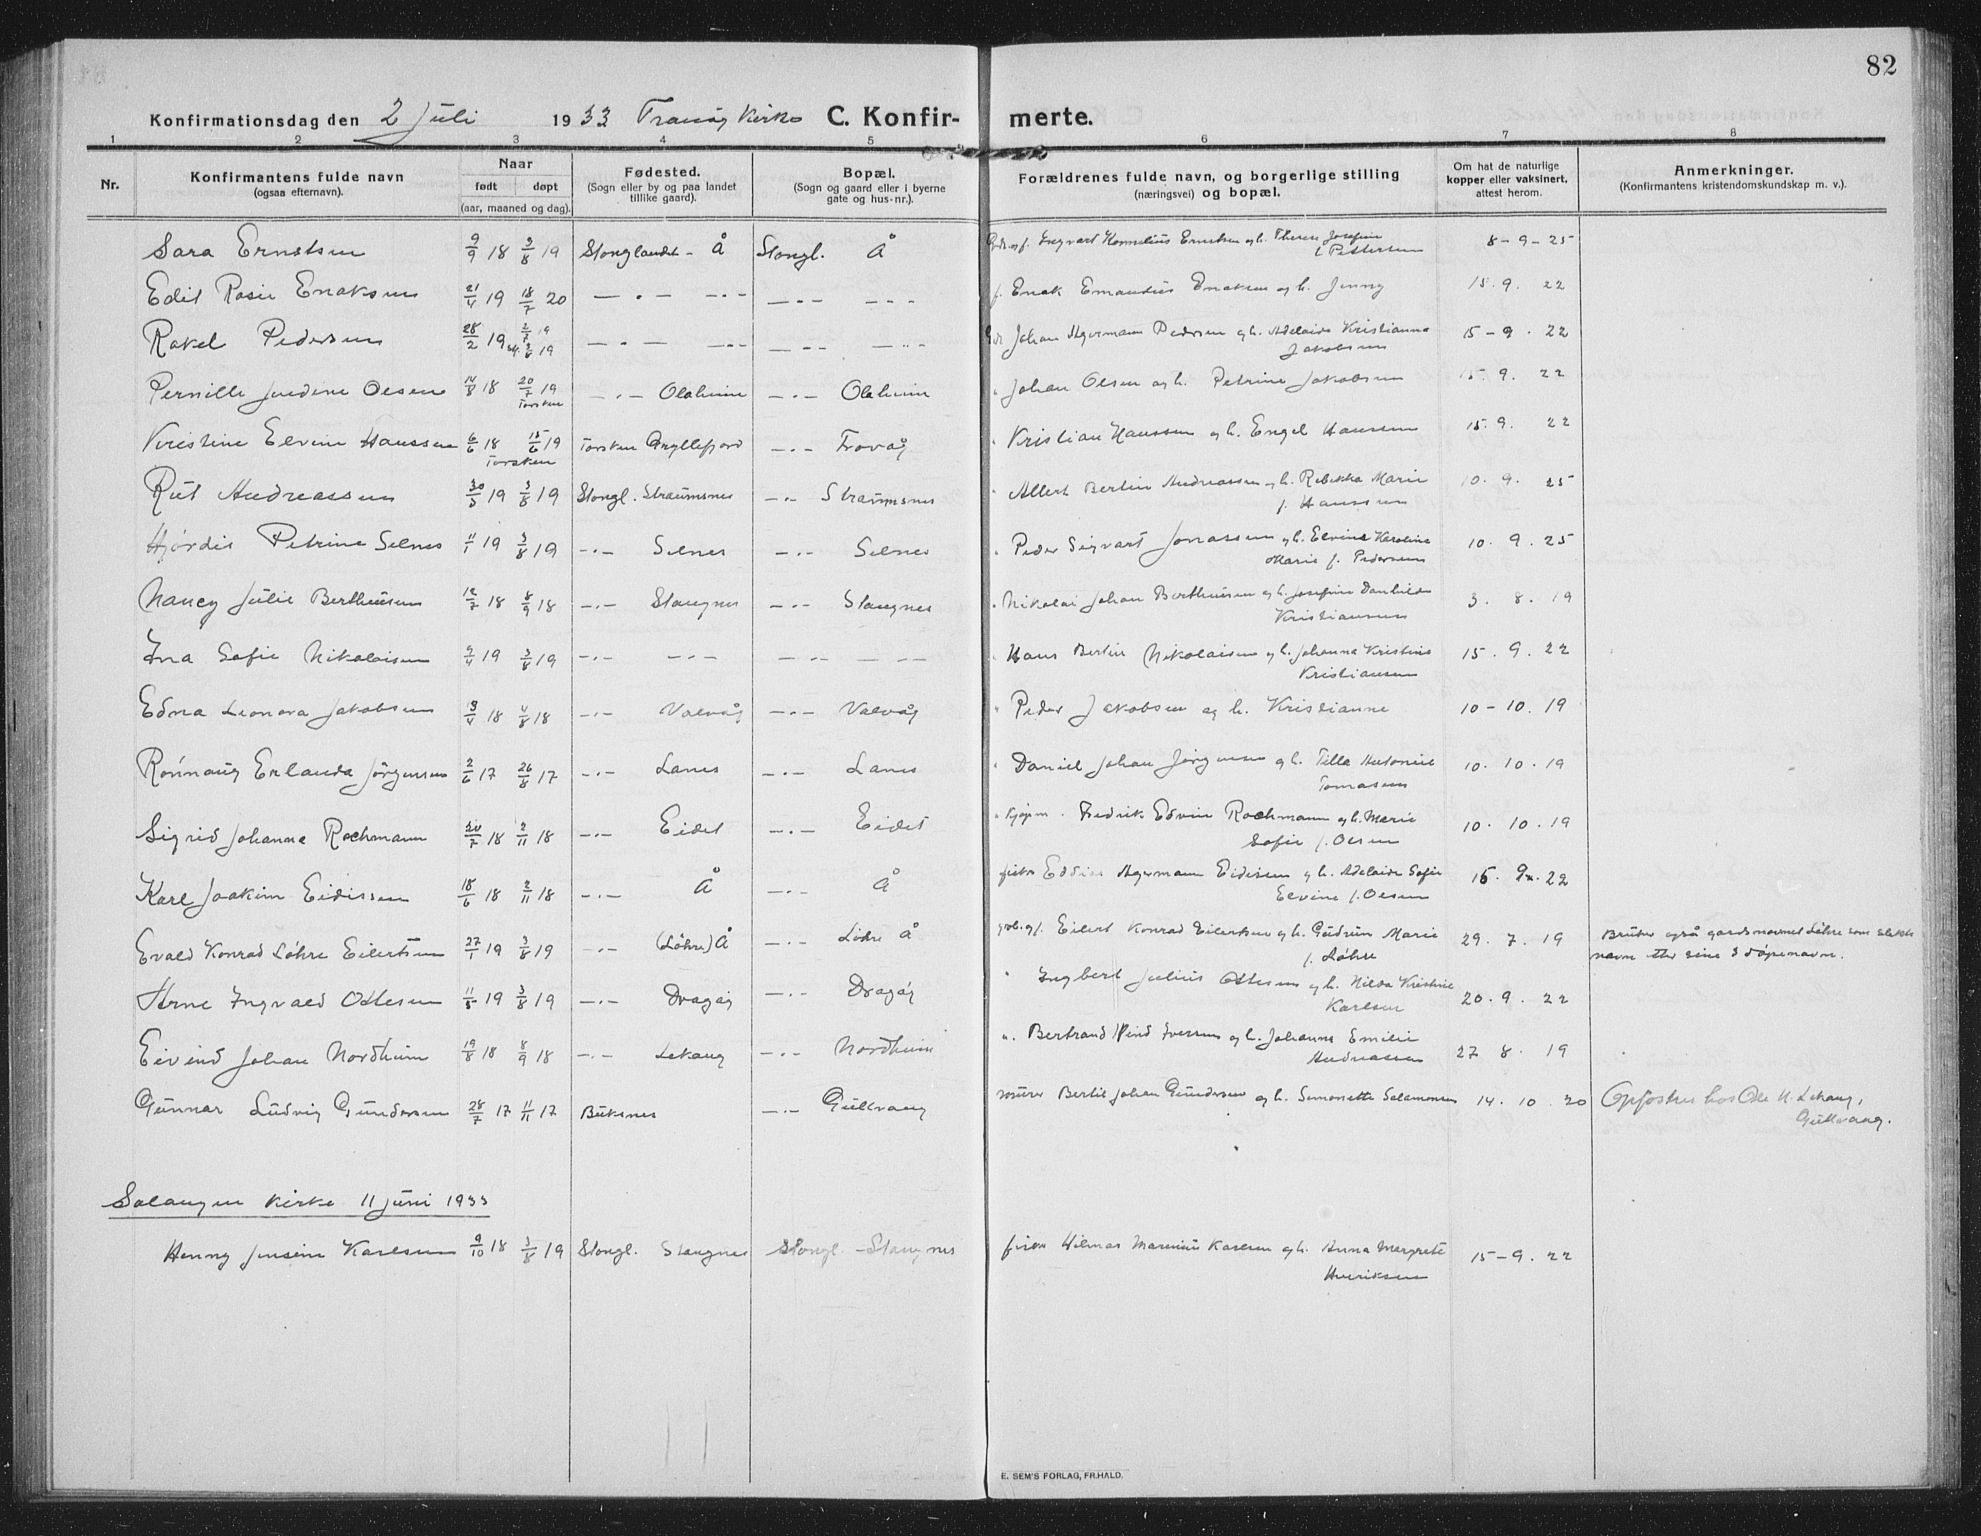 82
Konfirmationsdag den 2 Juli 1933 Tranøy Kirke C. Konfir- merte.
1 2 3 4 5 6 7 8
Nr. Konfirmantens fulde navn (ogsaa efternavn). Naar født døpt (aar, maaned og dag). Fødested. (Sogn eller by og paa landet tillike gaard). Bopæl. (Sogn og gaard eller i byerne gate og hus-nr.). Forældrenes fulde navn, og borgerlige stilling (næringsvei) og bopæl. Om hat de naturlige kopper eller vaksinert, attest herom. Anmerkninger. (Konfirmantens kristendomskundskap m. v.).
Sara Ernstsen 9/9 18 3/8 19 Stonglandet - Å Stongl. Å Ingvart Kornelius Ernstsen og h. Therese Josefine
f. Pettersen 8-9-25
Edit Rosie Enoksen 21/4 19 18/7 20 — . — — . — — . — — . — f. Enok Emandius Enoksen og h. Jenny 15.9.22
Rakel Pedersen 28/2 19 2/7 19 st. 3/8 19 — . — — . — — . — — . — Johan Hagerman Pedersen og h. Adelaide Kristianna
Jakobsen 15-9.22
Pernille Judine Olsen 14/8 18 20/7 19 Torsken — . — Olaheim — . — Olaheim Johan Olsen og h. Petrine Jakobsen 15.9.22
Kristine Elvine Hanssen 6/6 18 15/6 19 Torsken Torsken Gryllefjord — . — Frovåg Kristian Hanssen og h. Engel Hansen 15.9.22
Rut Andreassen 30/5 19 3/8 19 Stongl. Straumsnes — . — Straumsnes Albert Bertin Andreassen og h. Rebekka Marie
f. Hanssen 10.9.25
Hjørdis Petrine Selnes 11/1 19 3/8 19 — . — Selnes — . — Selnes Peder Sigvart Jonassen og h. Elvine Karoline
Marie f. Pedersen 10.9.25
Nancy Julie Berthinsen 12/7 18 8/9 18 — . — Stangnes — . — Stangnes Nikolai Johan Berthinsen og h. Josefine Danhilde
Kristiansen 3.8.19
Ina Sofie Nikolaisen 9/4 19 3/8 19 — . — — . — — . — — — Hans Bertin Nikolaisen og h. Johanna Kristine
Kristiansen 15.9.22
Edna Leonora Jakobsen 13/4 18 4/8 18 — . — Valvåg — . — Valvåg Peder Jakobsen og h. Kristianne 10-10.19
Rønnaug Erlanda Jørgensen 2/6 17 26/8 17 — . — Lanes — . — Lanes Daniel Johan Jørgensen og h. Tilla Antonie
Tomasen 10.10.19
Sigrid Johanna Rochmann 20/7 18 2/11 18 — . — Eidet — . — Eidet Kjøpm. Fredrik Edvin Rochmann og h. Marie
Sofie f. Olsen 10.10.19
Karl Joakim Eidissen 18/6 18 2/11 18 — . — Å — . — Å fisker Eddies Hagerman Eidissen og h. Adelaide Sofie
Elvine f. Olsen 15.9.22
Evald Konrad Løhre Eilertsen 27/1 19 3/8 19 — . — (Løhre) Å — . — Løhre Å Eilert Konrad Eilertsen og h. Gudrun Marie
f. Løhre 29.7.19 Bruker også gardsnavnet Løhre som slekts
navn etter sine 3 døpenavn.
Arne Ingvald Ottesen 11/5 19 3/8 19 — . — Dragøy — . — Dragøy Ingbert Julius Ottesen og h. Hilda Kristine
Karlsen 20.9.22
Eivind Johan Nordheim 19/8 18 8/9 18 — . — Lekang — . — Nordheim Bertrand Iversen og h. Johanna Emilie
Andreassen 27.8.19
Gunnar Ludvig Gundersen 28/7 17 11/11 17 Buksnes — . — Gullvang murer Bertil Johan Gundersen og h. Simonette Salamonsen 14.10.20 Opfostres hos Ole N. Lekang,
Gullvang.
Salangen kirke 11 juni 1933
Henny Jensine Karlsen 9/10 18 3/8 19 Stongl. Stangnes Stongl. - Stangnes fisker Hilmar Marinius Karlsen og h. Anna Margrete
Henriksen 15-9.22
E. SEM'S FORLAG, FR.HALD.